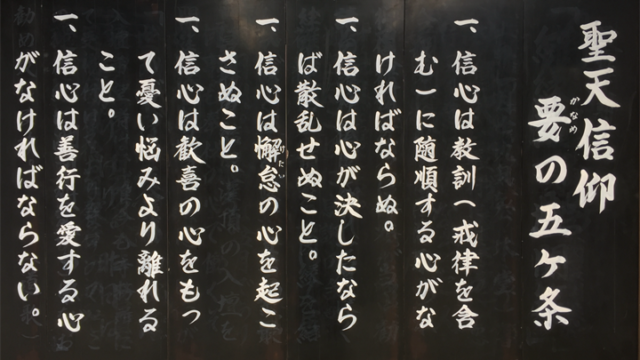 聖天信仰
要の五ケ条
かなめ
一、信心は教訓（戒律を含
む）に随順する心がな
ければならぬ。
一、信心は心が決したなら
ば散乱せぬこと。
一、信心は懈怠の心を起こ
けたい
さぬこと。
一、信心は歓喜の心をもっ
て憂い悩みより離れる
こと。
一、信心は善行を愛する心
がなければならない。